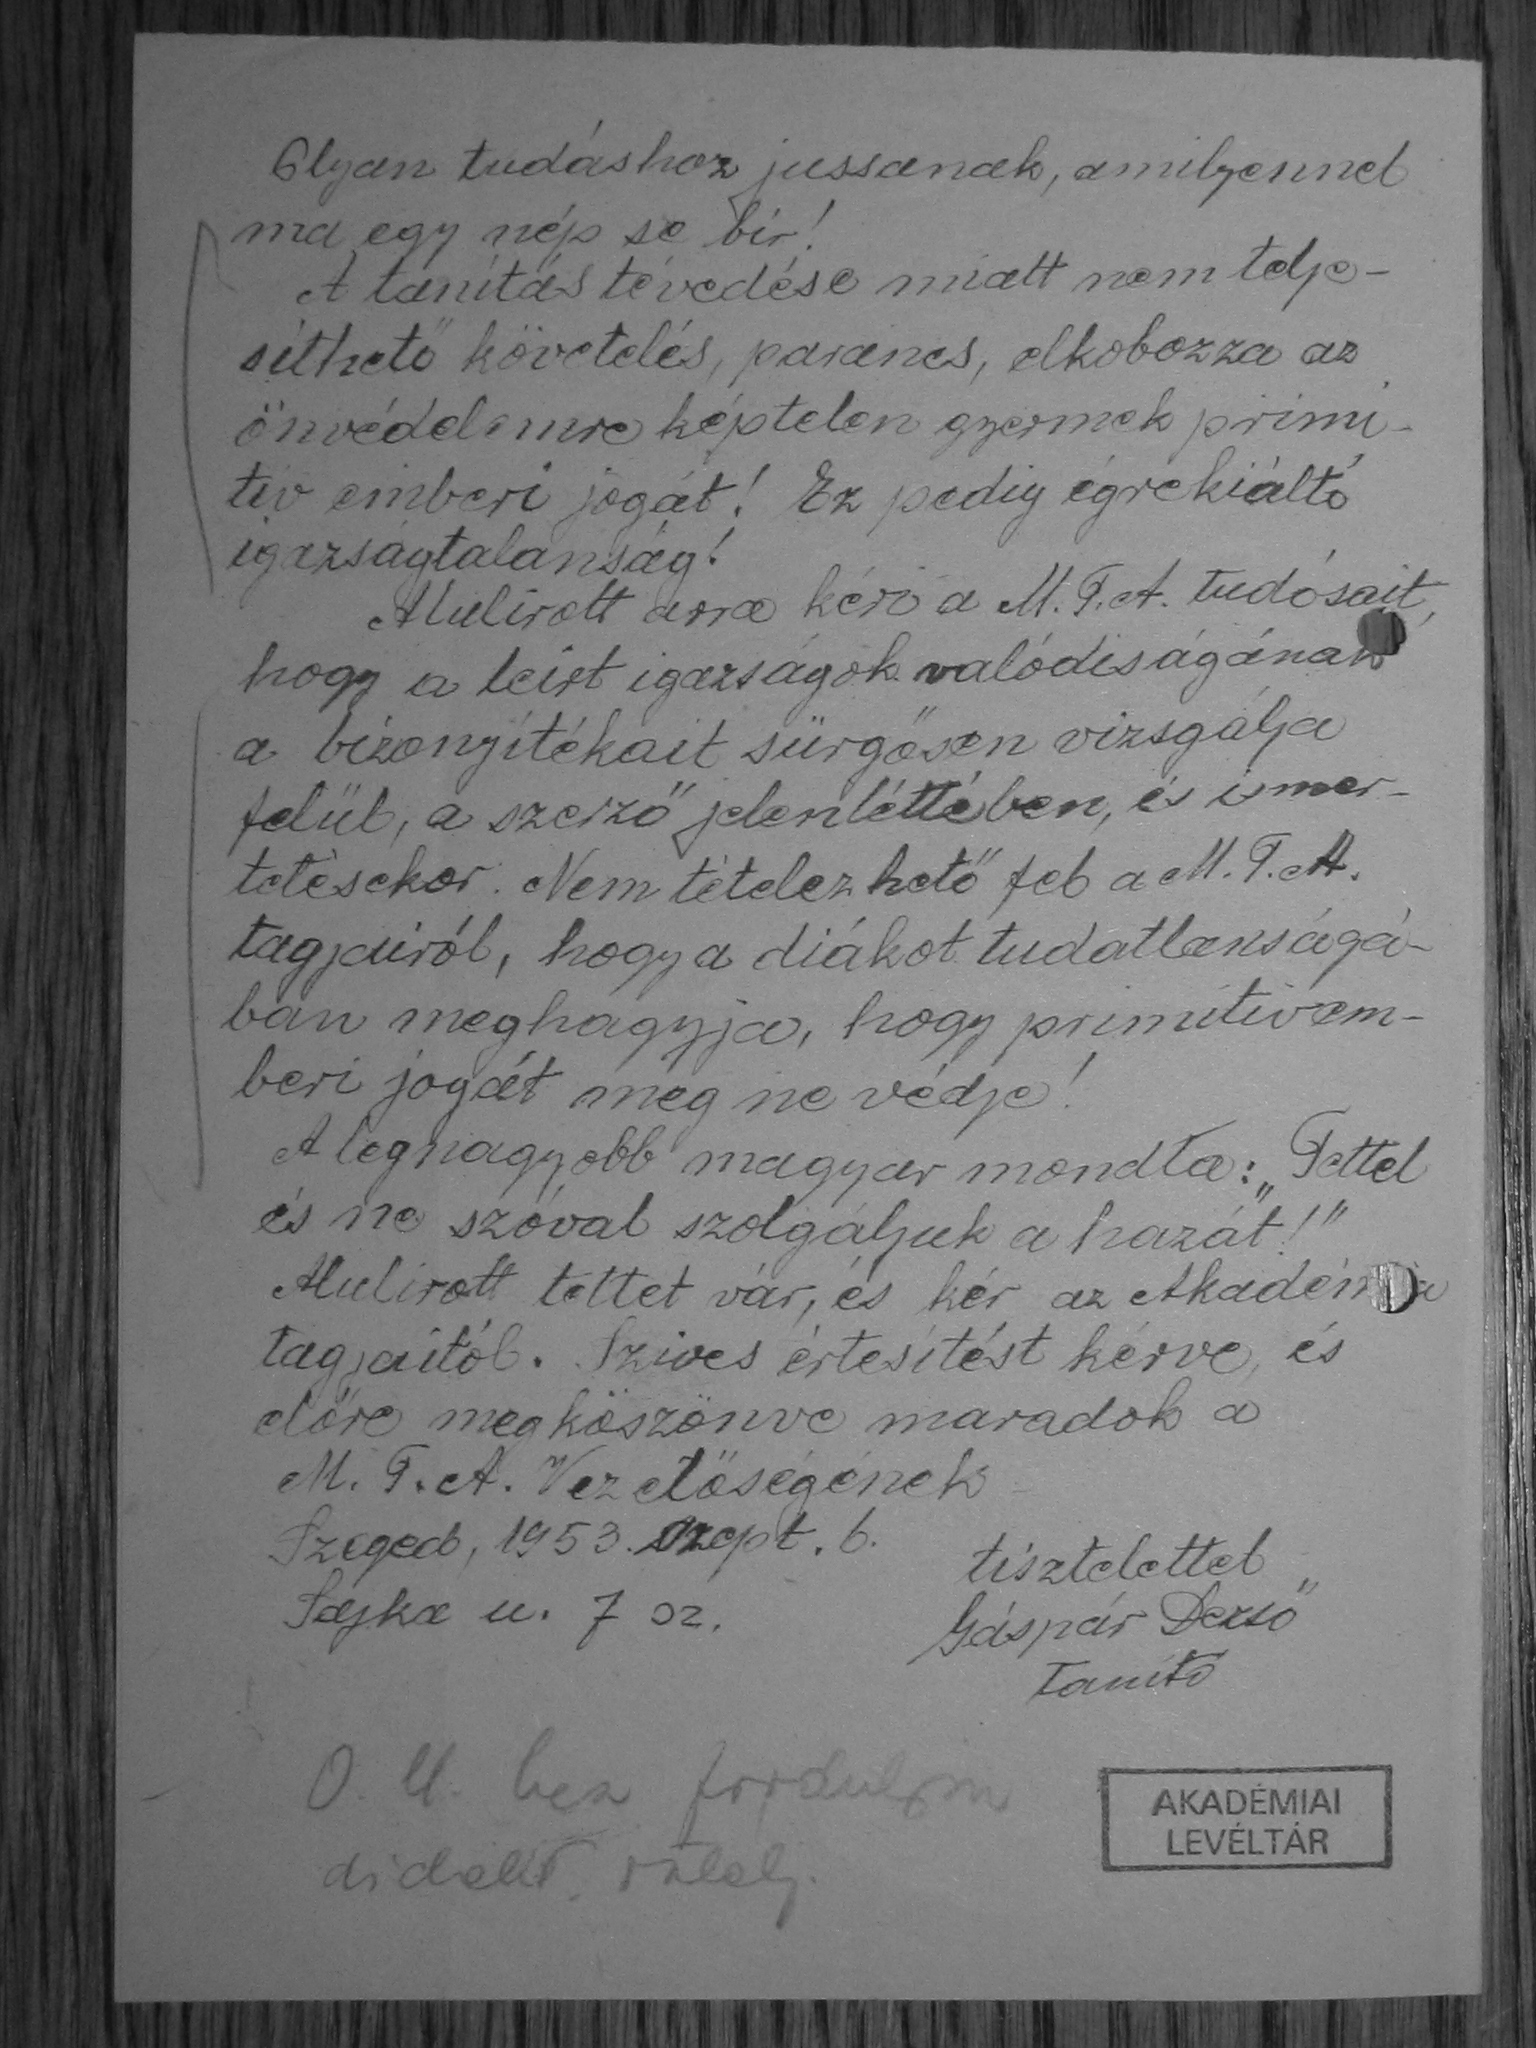 Olyan tudáshoz jussanak, amilyennel
ma egy nép se bír!
A tanítás tévedése miatt nem telje-
síthető követelés, parancs, elkobozza az
önvédelemre képtelen gyermek primi-
tív emberi jogát! Ez pedig égrekiáltó
igazságtalanság!
Alulirott arra kéri a M.T.A. tudósait,
hogy a leírt igazságok valódiságának
a bizonyítékait sürgősen vizsgálja
felül, a szerző jelenlétében, és ismer-
tetésekor. Nem tételezhető fel a M.T.A.
tagjairól, hogy a diákot tudatlanságá-
ban meghagyja, hogy primitív em-
beri jogát meg ne védje!
A legnagyobb magyar mondta: „Tettel
és ne szóval szolgáljuk a hazát!"
Alulirott tettet vár, és kér az Akadémia
tagjaitól. Szíves értesítést kérve, és
előre megköszönve maradok a
M.T.A. Vezetőségének
Szeged, 1953. szept. 6.
tisztelettel
Sajka u. 7 sz.
Gáspár Dezső
tanító
O. M. hez forduljon
AKADÉMIAI
LEVÉLTÁR